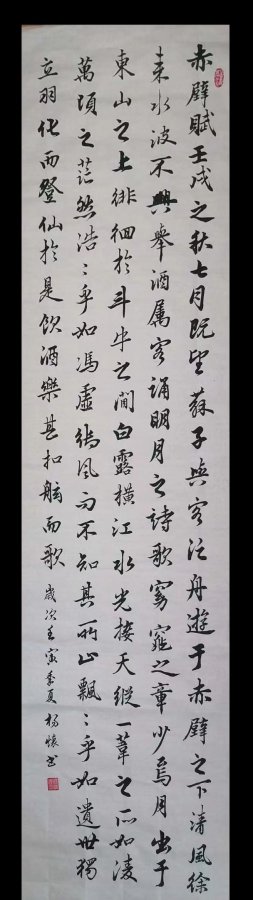 赤壁賦壬戌之秋七月既望蘇子與客泛舟遊于赤壁之下清風徐
来水波不興舉酒屬客誦明月之詩歌窈窕之章少焉月出于
東山之上徘徊於斗牛之間白露橫江水光接天縱一葦之所如凌
萬頃之茫然浩〻乎如馮虛御風而不知其所止飄〻乎如遺世獨
立羽化而登仙於是飲酒樂甚扣舷而歌 歲次壬寅季夏楊懷書